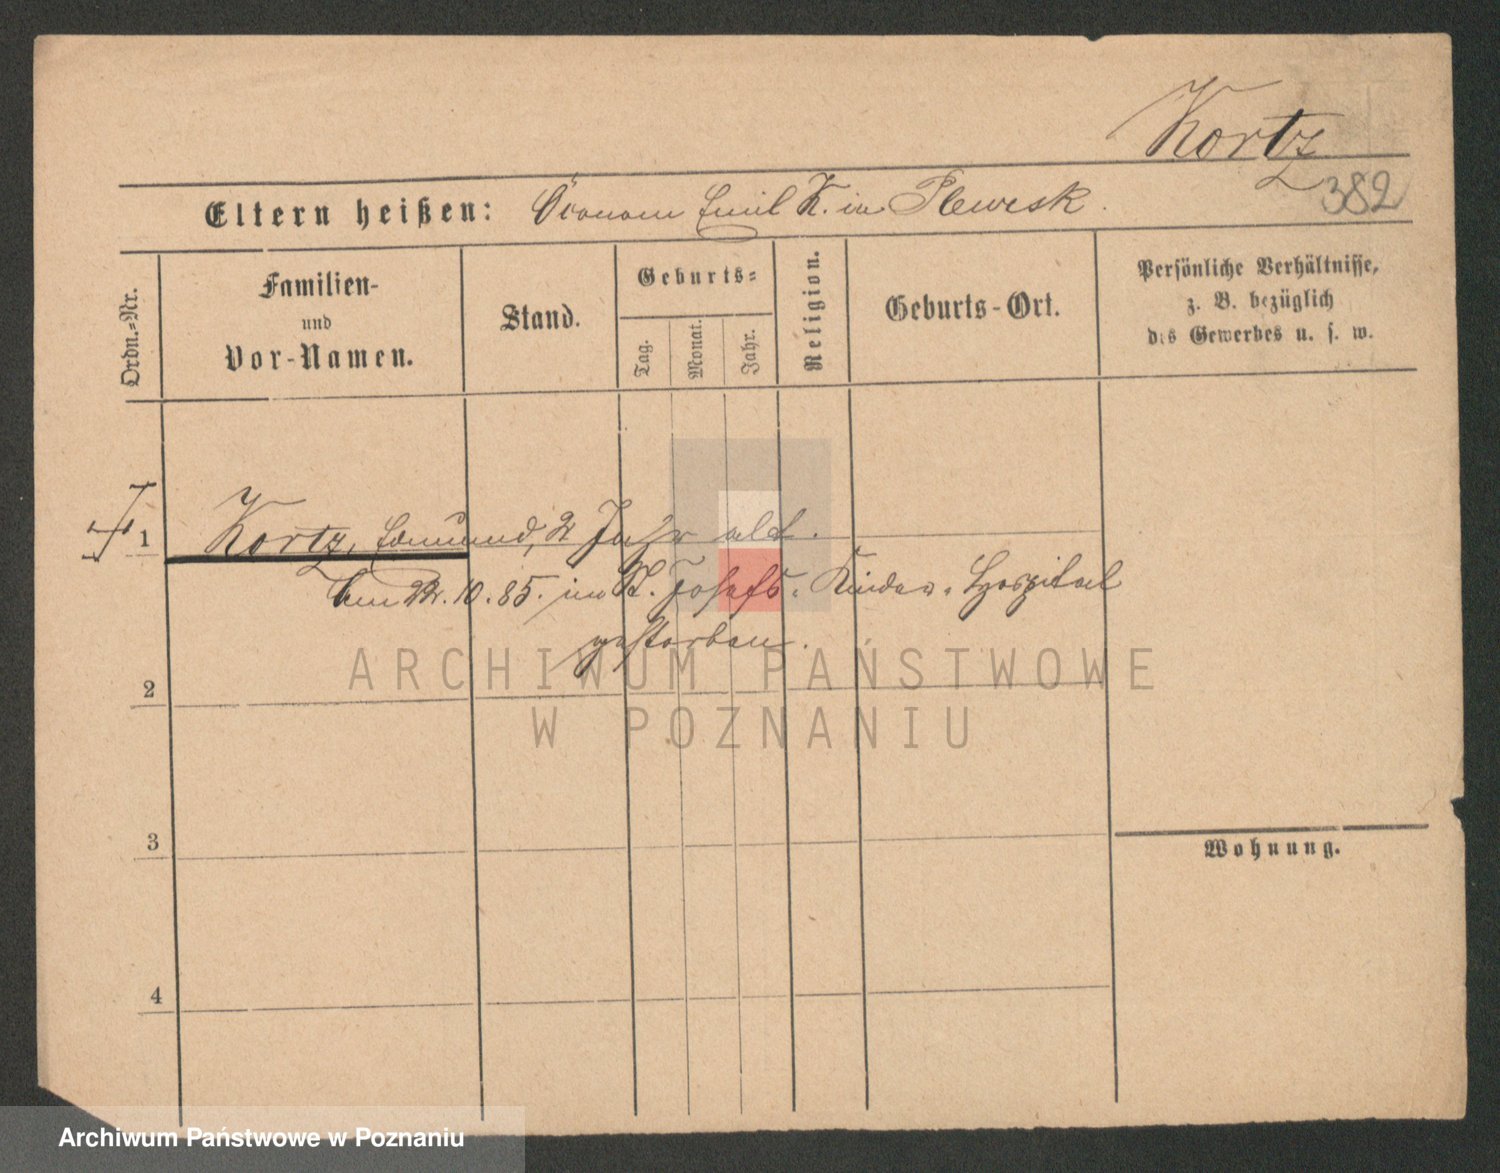 Kortz
382
Eltern heißen: Öconom Emil K. in Plewisk.
Ordn.-Nr.
Familien-
und
Vor-Namen.
Stand.
Geburts-
Tag.
Monat.
Jahr.
Religion.
Geburts-Ort.
Persönliche Verhältnisse,
z. B. bezüglich
des Gewerbes u. s. w.
1 Kortz, Edmund, 2 Jahr alt.
22.10.85. im St. Josefs-Kinder-Hospital
gestorben.
ARCHIWUM PAŃSTWOWE
W POZNANIU
2
3
Wohnung.
4
Archiwum Państwowe w Poznaniu